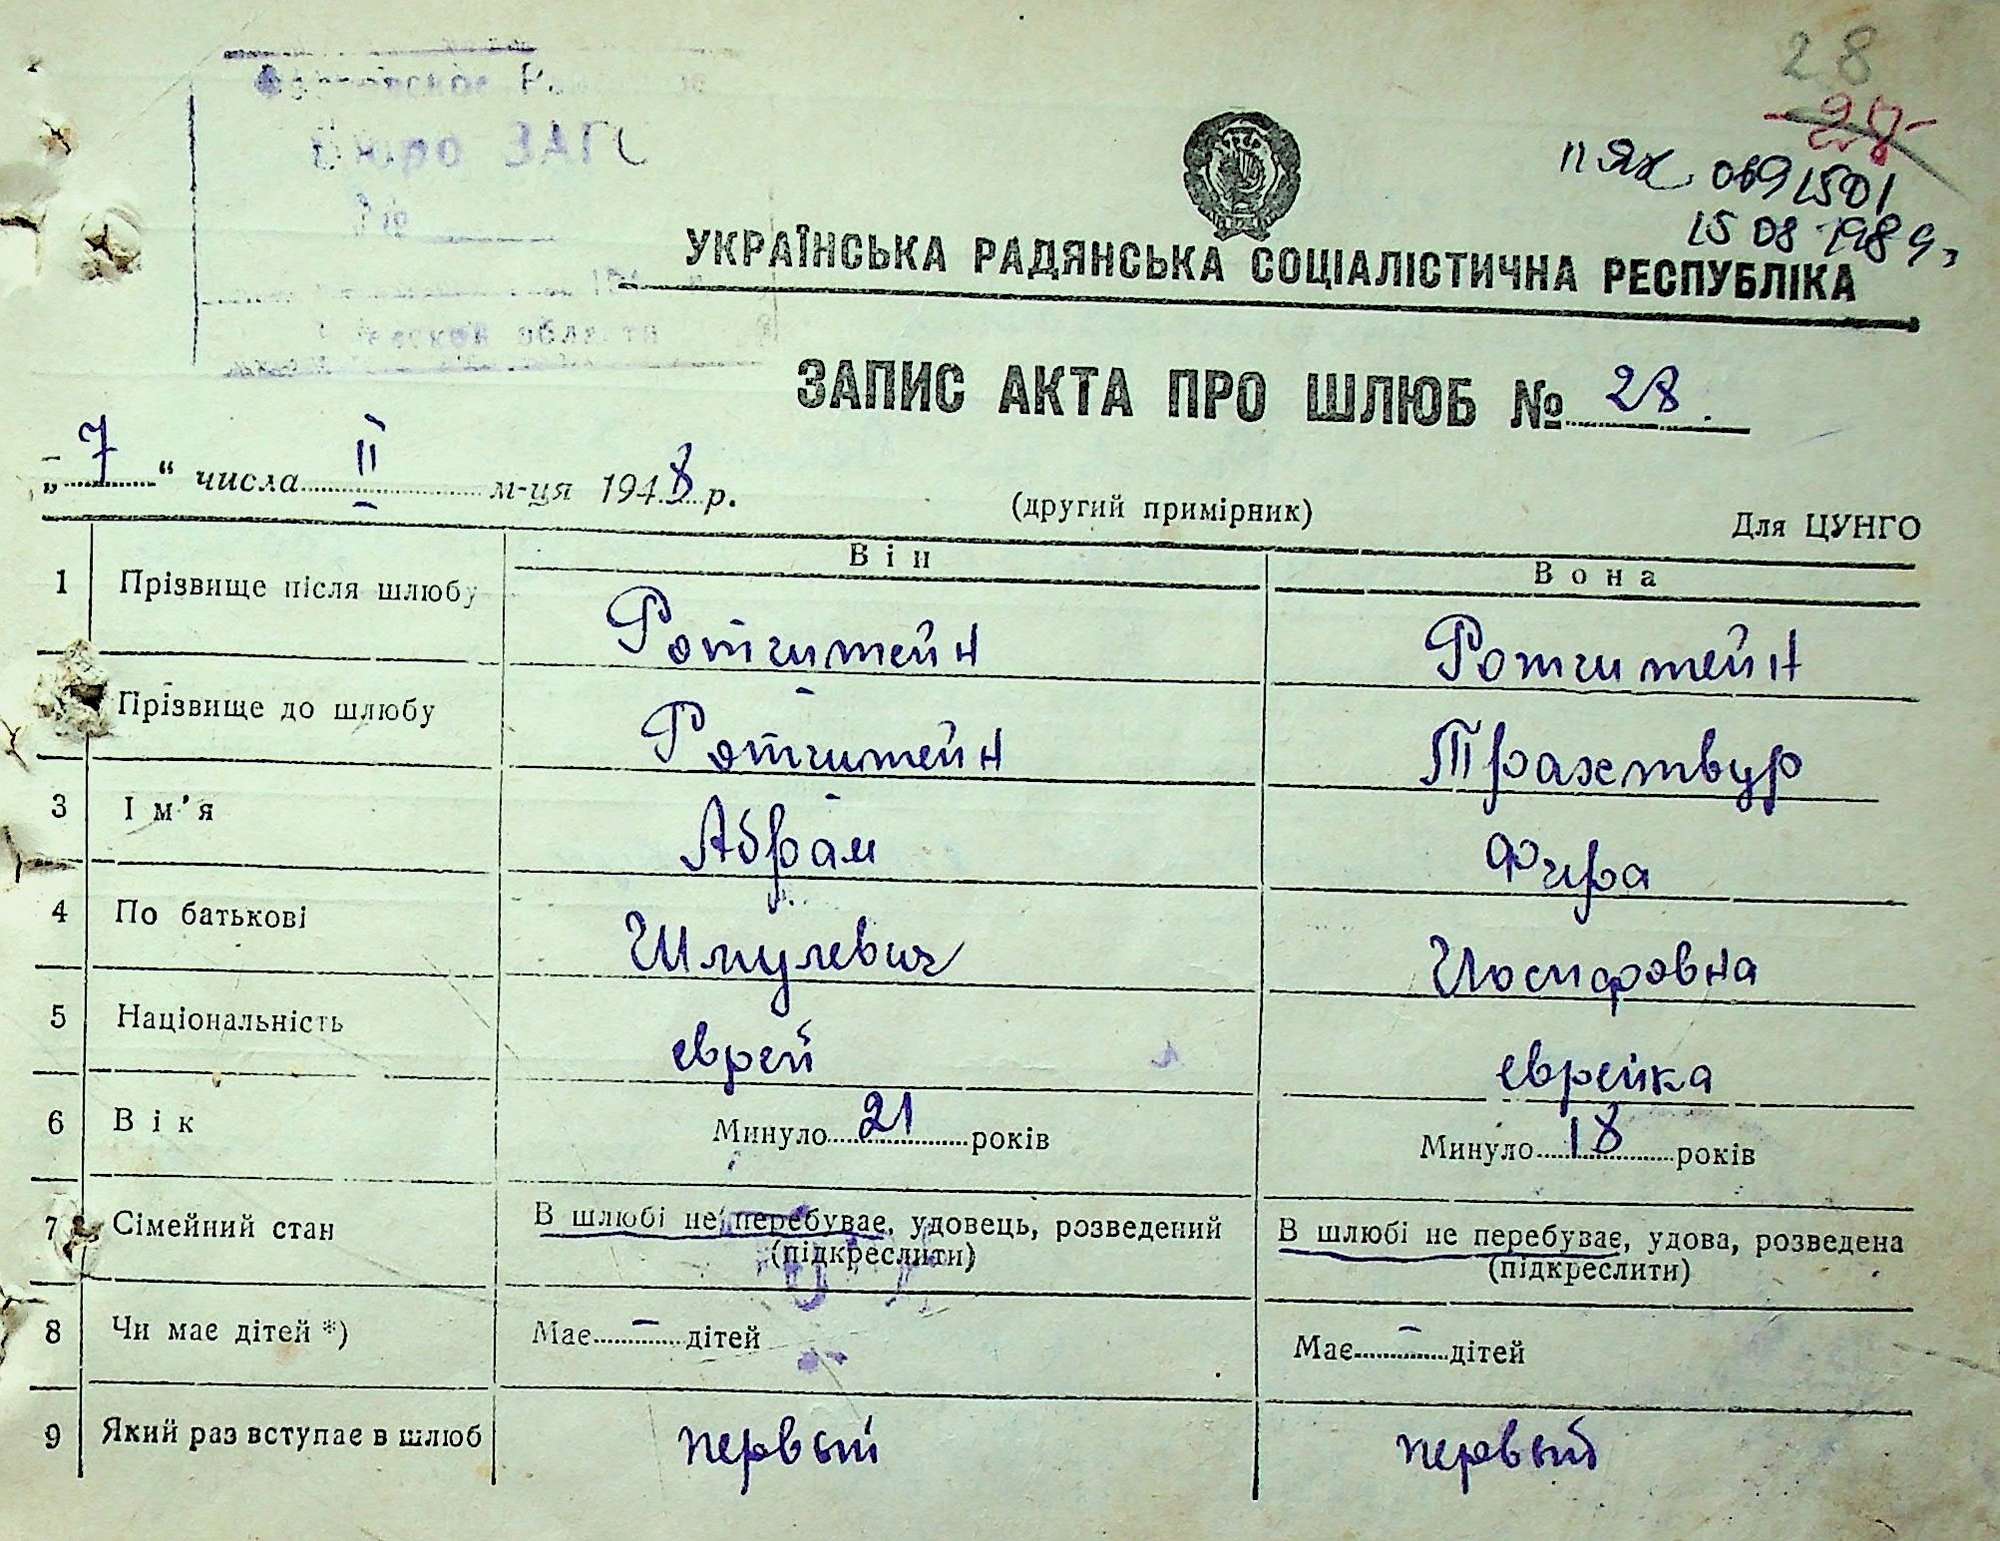 28
27
II ЯЖ 0691501
15 08 1989г
Бюро ЗАГС
области
УКРАЇНСЬКА РАДЯНСЬКА СОЦІАЛІСТИЧНА РЕСПУБЛІКА
ЗАПИС АКТА ПРО ШЛЮБ № 28.
„7“ числа II м-ця 1948 р.
(другий примірник) Для ЦУНГО
Він Вона
1 Прізвище після шлюбу Ротштейн Ротштейн
Прізвище до шлюбу Ротштейн Трахтвур
3 Ім’я Абрам Фира
4 По батькові Шмулевич Иосифовна
5 Національність еврей еврейка
6 Вік Минуло 21 років Минуло 18 років
7 Сімейний стан В шлюбі не перебуває, удовець, розведений В шлюбі не перебуває, удова, розведена
(підкреслити) (підкреслити)
8 Чи має дітей *) Має – дітей Має – дітей
9 Який раз вступає в шлюб первый первый